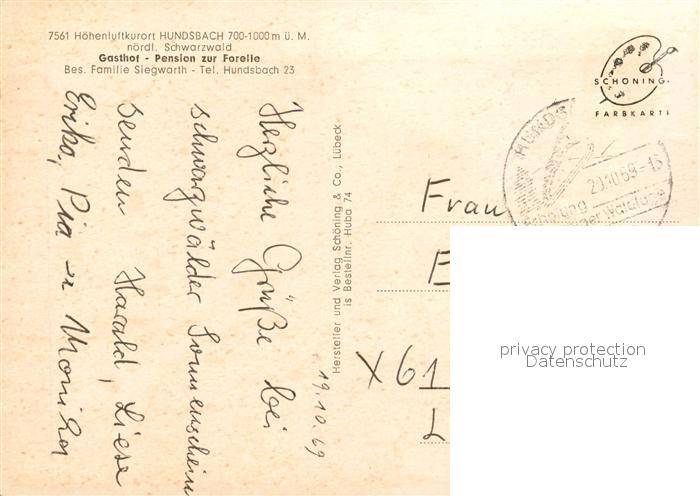 7561 Höhenluftkurort HUNDSBACH 700-1000 m ü. M.
nördl. Schwarzwald
Gasthof - Pension zur Forelle
Bes. Familie Siegwarth - Tel. Hundsbach 23
SCHÖNING
FARBKARTE
HUNDS
20.10.69-15
Erholung
der Waldtäler
19.10.69
Herzliche Grüße bei
schwarzwälder Sonnenschein
senden Harald, Liese
Erika, Pia u Monika
Hersteller und Verlag Schöning & Co., Lübeck
is Bestellnr. Huba 74
Frau
E
X61
L
privacy protection
Datenschutz